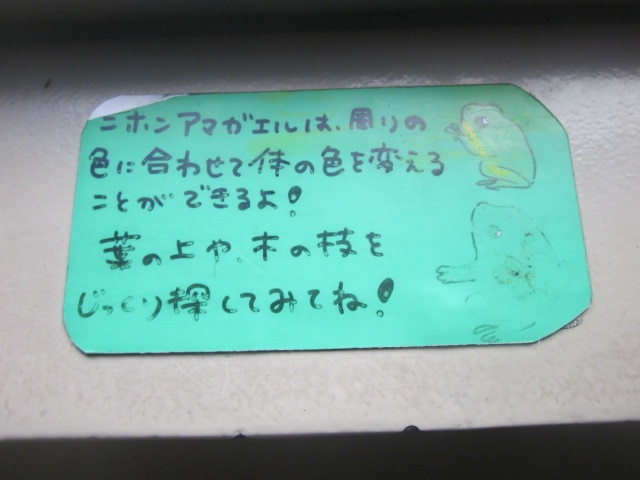 ニホンアマガエルは、周りの
色に合わせて体の色を変える
ことができるよ!
葉の上や、木の枝を
じっくり探してみてね!